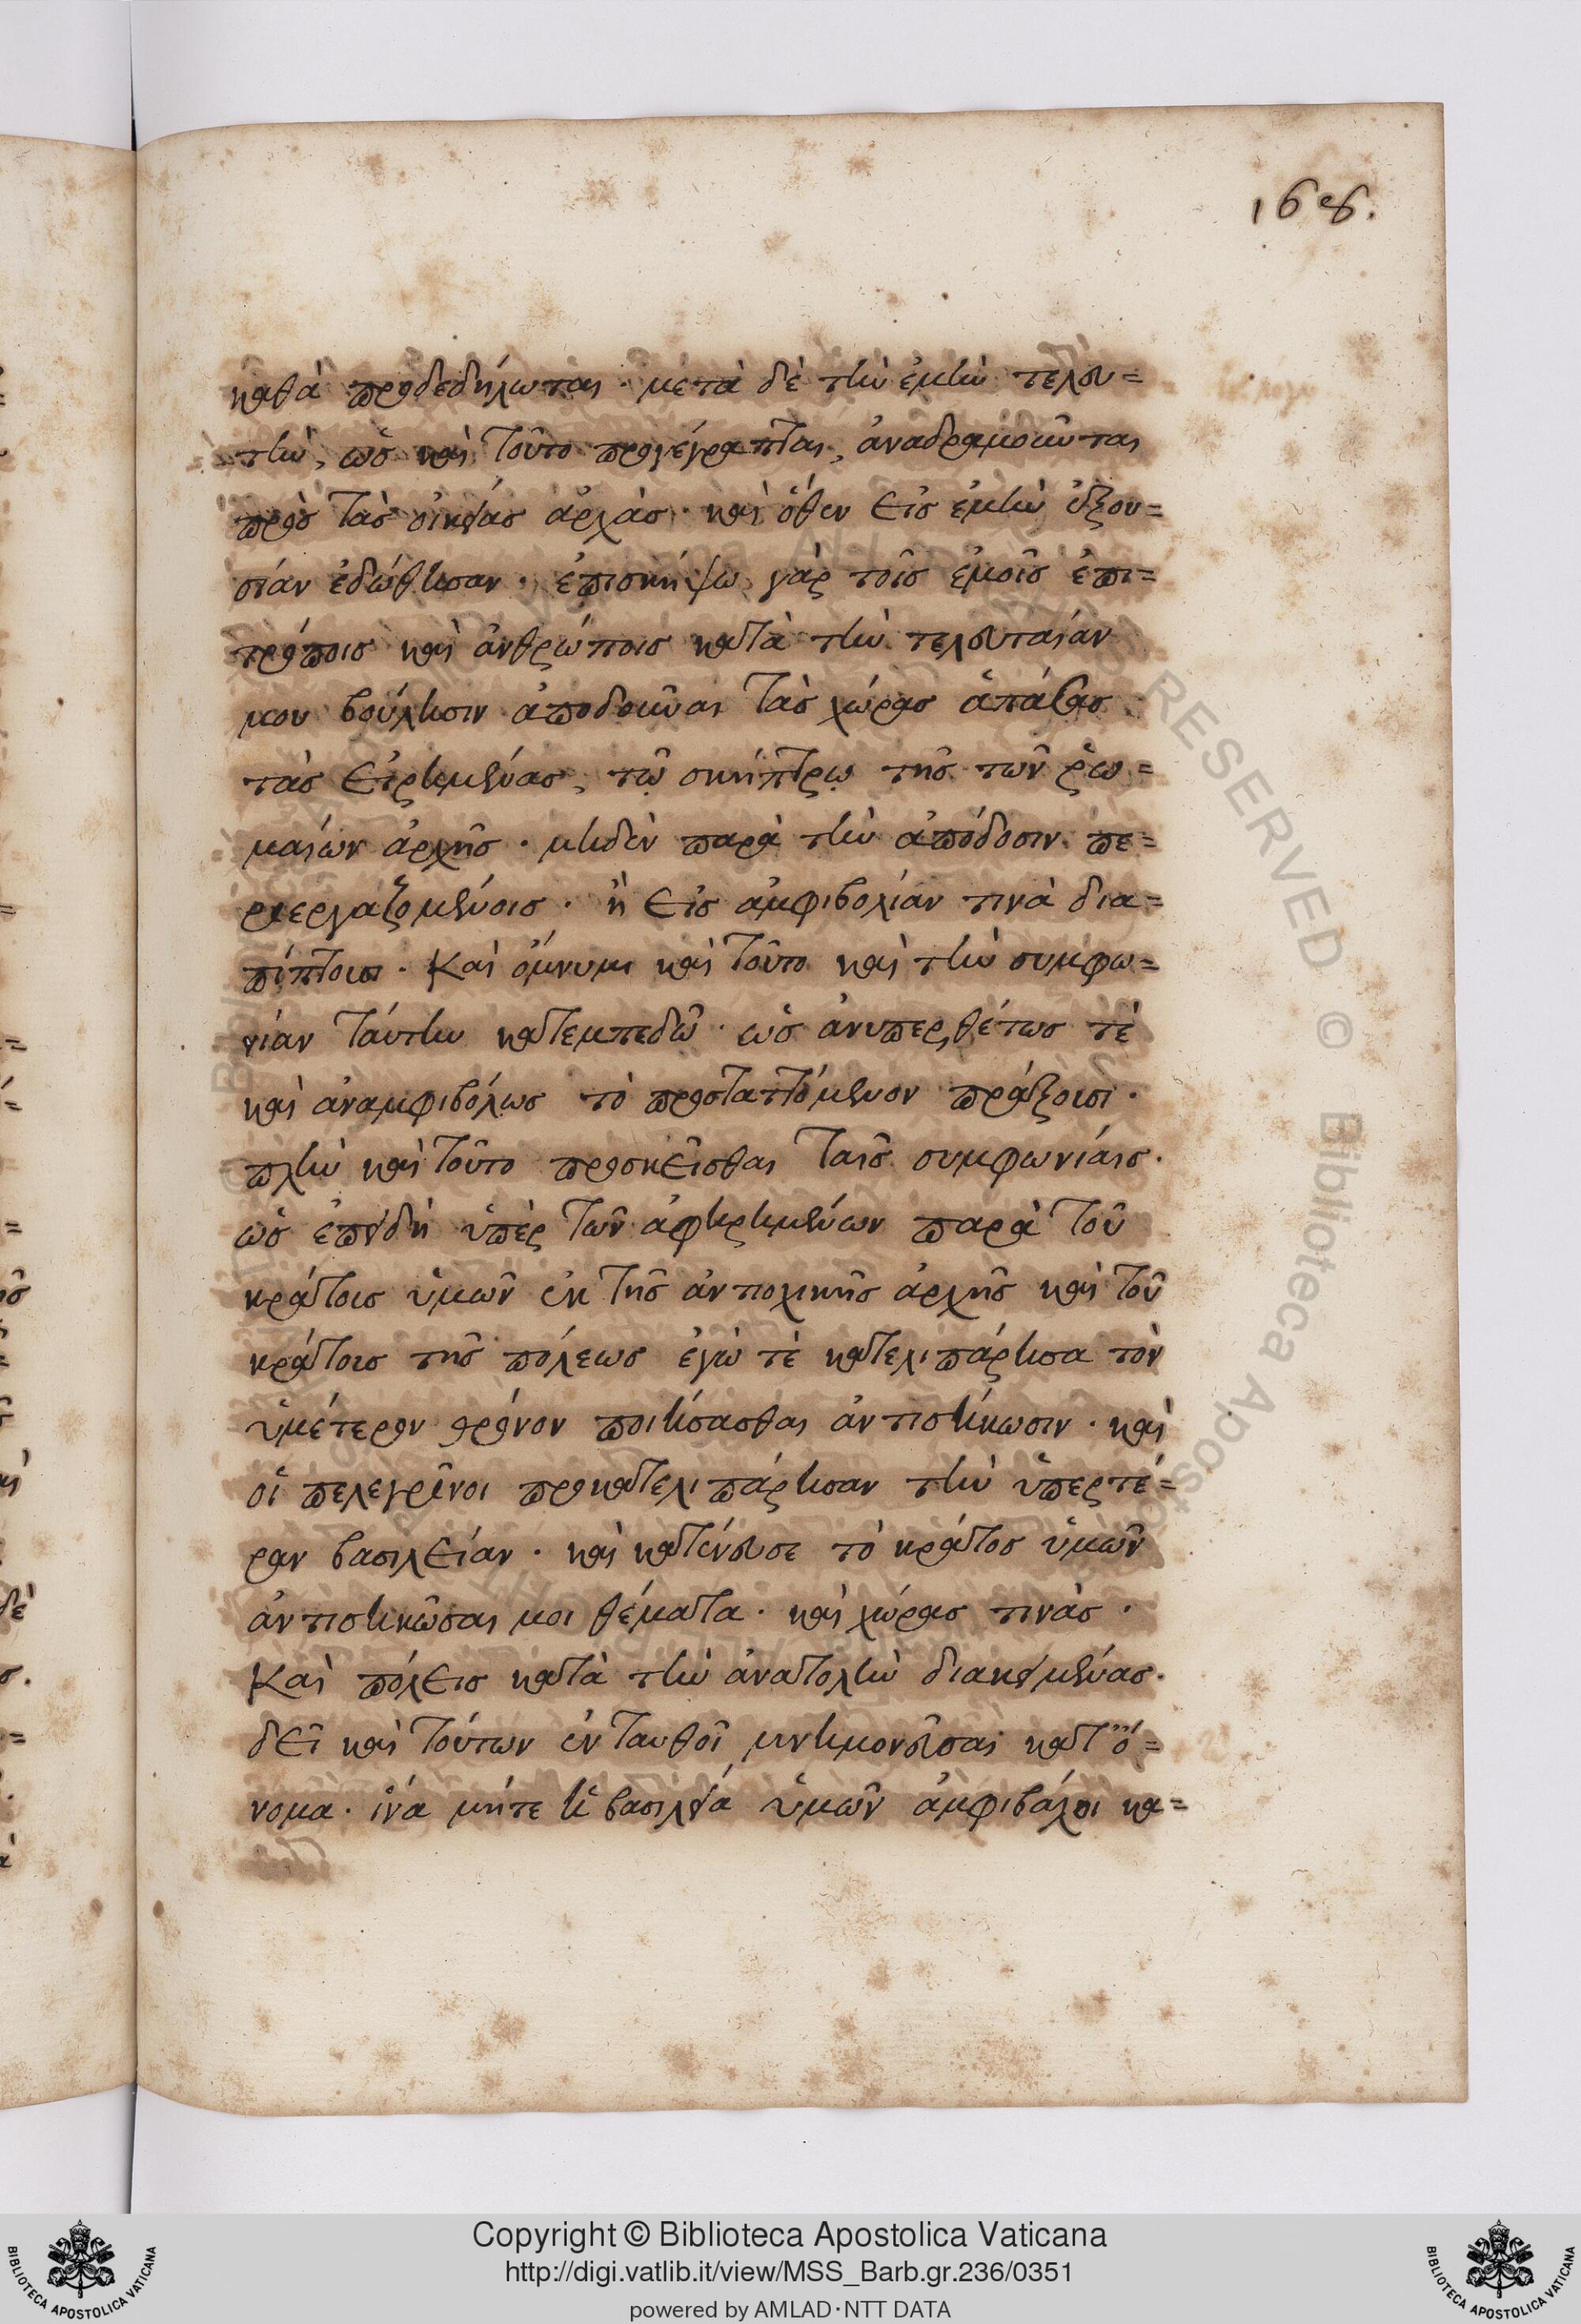 168.
καθὰ προδεδήλωται · μετὰ δὲ τὴν ἐμὴν τελευ=
τὴν, ὡς καὶ τοῦτο προγέγραπται, ἀναδραμοῦνται
πρὸς τὰς οἰκείας ἀρχὰς · καὶ ὅθεν εἰς ἐμὴν ἐξου=
σίαν ἐδώθησαν · ἐπισκήψω γὰρ τοῖς ἐμοῖς ἐπι=
τρόποις καὶ ἀνθρώποις κατὰ τὴν τελευταίαν
μου βούλησιν ἀποδοῦναι τὰς χώρας ἁπάσας
τὰς εἰρημένας, τῷ σκήπτρῳ τῆς τῶν ῥω=
μαίων ἀρχῆς · μηδὲν παρὰ τὴν ἀπόδοσιν πε=
ριεργαζομένοις · ἢ εἰς ἀμφιβολίαν τινὰ δια=
πίπτουσι · Καὶ ὄμνυμι καὶ τοῦτο καὶ τὴν συμφω=
νίαν ταύτην κατεμπεδῶ · ὡς ἀνυπερθέτως τὲ
καὶ ἀναμφιβόλως τὸ προσταττόμενον πράξουσι ·
πλὴν καὶ τοῦτο προσκεῖσθαι ταῖς συμφωνίαις ·
ὡς ἐπειδὴ ὑπὲρ τῶν ἀφηρημένων παρὰ τοῦ
κράτους ὑμῶν ἐκ τῆς ἀντιοχικῆς ἀρχῆς καὶ τοῦ
κράτους τῆς πόλεως ἐγώ τὲ κατελιπάρησα τὸν
ὑμέτερον θρόνον ποιήσασθαι ἀντισήκωσιν · καὶ
οἱ πελεγρῖνοι προκατελιπάρησαν τὴν ὑπερτέ=
ραν βασιλείαν · καὶ κατένευσε τὸ κράτος ὑμῶν
ἀντισηκῶσαι μοι θέματα · καὶ χώρας τινὰς ·
Καὶ πόλεις κατὰ τὴν ἀνατολὴν διακειμένας ·
δεῖ καὶ τούτων ἐνταυθοῖ μνημονεῦσαι κατ' ὄ=
νομα · ἵνα μήτε ἡ βασιλεία ὑμῶν ἀμφιβάλοι κα=
© Biblioteca Apostolica Vaticana ALL RIGHTS RESERVED
Copyright © Biblioteca Apostolica Vaticana
http://digi.vatlib.it/view/MSS_Barb.gr.236/0351
powered by AMLAD·NTT DATA
BIBLIOTECA APOSTOLICA VATICANA
BIBLIOTECA APOSTOLICA VATICANA